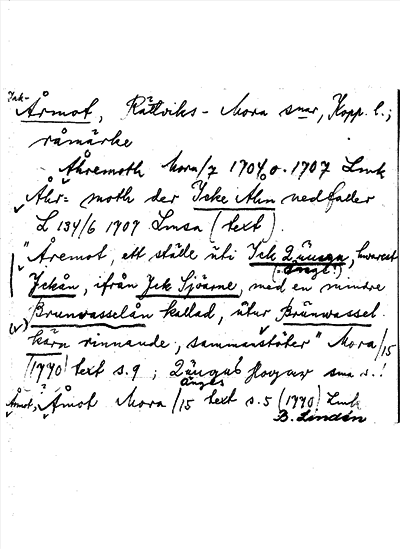 Jnk-
Åremot, Rättviks- Mora snar, Kopp. l.;
råmärke
Åhremoth Mora/7 1704 o. 1707 Lmk
Åhr= moth der Jcke Åhn nedfader
L 134/6 1707 Lmsa (text).
"Åremot, ett ställe uti Jck Längan, hwarest
(:ängt:)
Jckån, ifrån Jck Sjöarne, med en mindre
(v) Brunwasselån kallad, utur Brunwassel
kärn rinnande, sammanstöter" Mora/15
1770 text s. 9; Längals Hagar sma d.!
änges
Åmot, Åmot Mora/15 text s. 5 (1770) Lmk
B. Lindén